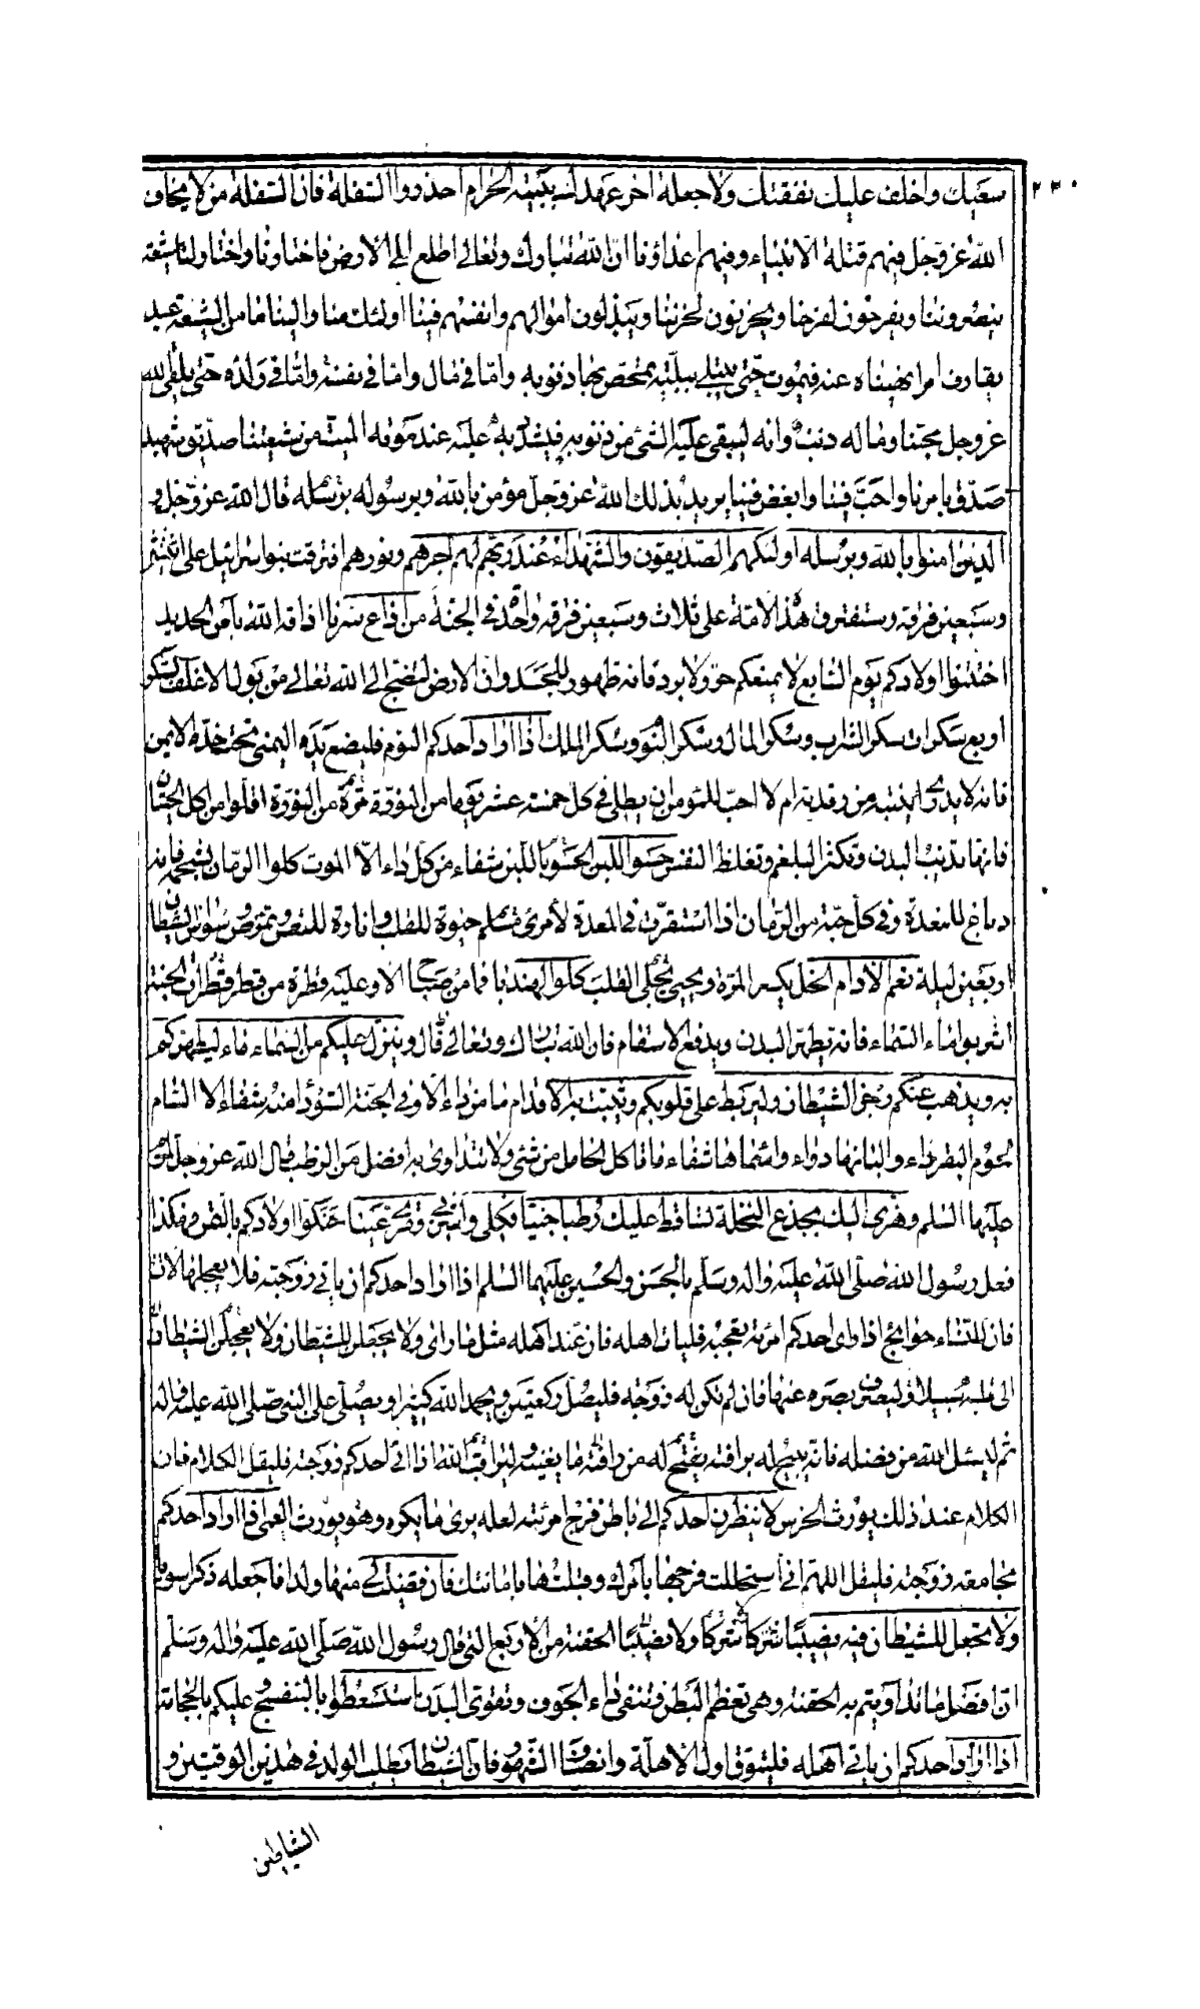 سعيك واخلف عليك نفقتك ولا جعله اخر عهدك ببيته الحرام احذروا السفلة فان السفلة من لا يخاف
٢٣٠
الله عز وجل فيهم قتلة الانبياء وفيهم اعداؤنا ان الله تبارك وتعالى اطلع الى الارض فاختارنا واختار لنا شيعة
ينصروننا ويفرحون لفرحنا ويحزنون لحزننا ويبذلون اموالهم وانفسهم فينا اولئك منا والينا ما من الشيعة عبد
يقارف امرا نهيناه عنه فيموت حتى يبتلى ببلية يمحص بها ذنوبه واما في مال واما في نفسه واما في ولده حتى يلقى الله
عز وجل محبنا وماله ذنب وانه ليبقى عليه الشئ من ذنوبه فيشدد به عليه عند موته الميت من شيعتنا صديق شهيد
صدق بامرنا واحب فينا وابغض فينا يريد بذلك الله عز وجل مؤمن بالله وبرسوله برسله قال الله عز وجل و
الذين امنوا بالله وبرسله اولئك هم الصديقون والشهداء عند ربهم لهم اجرهم ونورهم افترقت بنو اسرائيل على اثنتين
وسبعين فرقة وستفترق هذه الامة على ثلاث وسبعين فرقة واحدة في الجنة من اذاع سرنا اذاقه الله بأس الحديد
اختنوا اولادكم يوم السابع لا يمنعكم حر ولا برد فانه طهور للجسد وان الارض لتضج الى الله تعالى من بول الاغلف السكر
اربع سكرات سكر الشرب وسكر المال وسكر النوم وسكر الملك اذا اراد احدكم النوم فليضع يده اليمنى تحت خده الايمن
فانه لا يدري اينتبه من رقدته ام لا احب للمؤمن ان يطلى في كل خمسة عشر يوما من النورة مرة من النورة اقلوا من اكل الحيتان
فانها تذيب البدن وتكثر البلغم وتغلظ النفس حسو اللبن الحسو باللبن شفاء من كل داء الا الموت كلوا الرمان بشحمه فانه
دباغ للمعدة وفي كل حبة من الرمان اذا استقرت في المعدة لأمرئ مسلم حيوة للقلب وانارة للنفس وتمرض وسواس الشيطان
اربعين ليلة نعم الادام الخل يكسر المرة ويحيى القلب كلوا الهندبا فما من صباح الا وعليه قطرة من قطر الجنة
اشربوا ماء السماء فانه يطهر البدن ويدفع الاسقام فان الله تبارك وتعالى قال وينزل عليكم من السماء ماء ليطهركم
به ويذهب عنكم رجز الشيطان وليربط على قلوبكم ويثبت به الاقدام ما من داء الا وفي الحبة السوداء منه شفاء الا السام
لحوم البقر داء والبانها دواء واسمانها شفاء ما تأكل الحامل من شئ ولا تتداوى به افضل من الرطب قال الله عز وجل لمريم
عليها السلم وهزى اليك بجذع النخلة تساقط عليك رطبا جنيا فكلى واشربى وقرى عينا حنكوا اولادكم بالتمر وهكذا
فعل رسول الله صلى الله عليه واله وسلم بالحسن والحسين عليهما السلم اذا اراد احدكم ان ياتي زوجته فلا يعجلها لان
فان للنساء حوايج اذا راى احدكم امرئة تعجبه فليات اهله فان عند اهله مثل ما راى ولا يجعلن للشيطان ولا يجعلن للشيطان
الى قلبه سبيلا وليصرف بصره عنها فان لم تكن له زوجة فليصل ركعتين ويحمد الله كثيرا ويصلى على النبي صلى الله عليه واله
ثم ليسئل الله من فضله فانه يبيح له برافته ما يغنيه اذا اتى احدكم زوجته فليقل الكلام فان
الكلام عند ذلك يورث الخرس لا ينظرن احدكم الى باطن فرج امرئته لعله يرى ما يكره وهو يورث العمى اذا اراد احدكم
مجامعة زوجته فليقل اللهم انى استحللت فرجها بأمرك وقبلتها بامانتك فان قضيت لى منها ولدا فاجعله ذكرا سويا
ولا تجعل للشيطان فيه نصيبا شركا ولا نصيبا الحقنة من الاربع التى قال رسول الله صلى الله عليه واله وسلم
ان افضل ما تداويتم به الحقنة وهي تعظم البطن وتنقى داء الجوف وتقوى البدن استسعطوا بالبنفسج وعليكم بالحجامة
اذا اراد احدكم ان ياتي اهله فليتوق اول الاهلة وانصاف الشهور فان الشيطان يطلب الولد في هذين الوقتين و
الشياطين